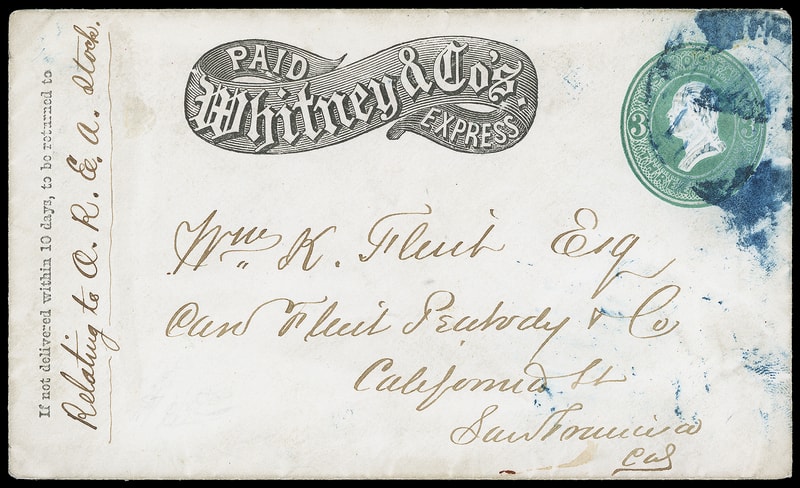 PAID
Whitney & Co's.
EXPRESS
3
If not delivered within 10 days, to be returned to
Relating to O. R. & A. Stock.
Wm K. Flint Esq
Care Flint Peabody & Co
California St
San Francisco
Cal